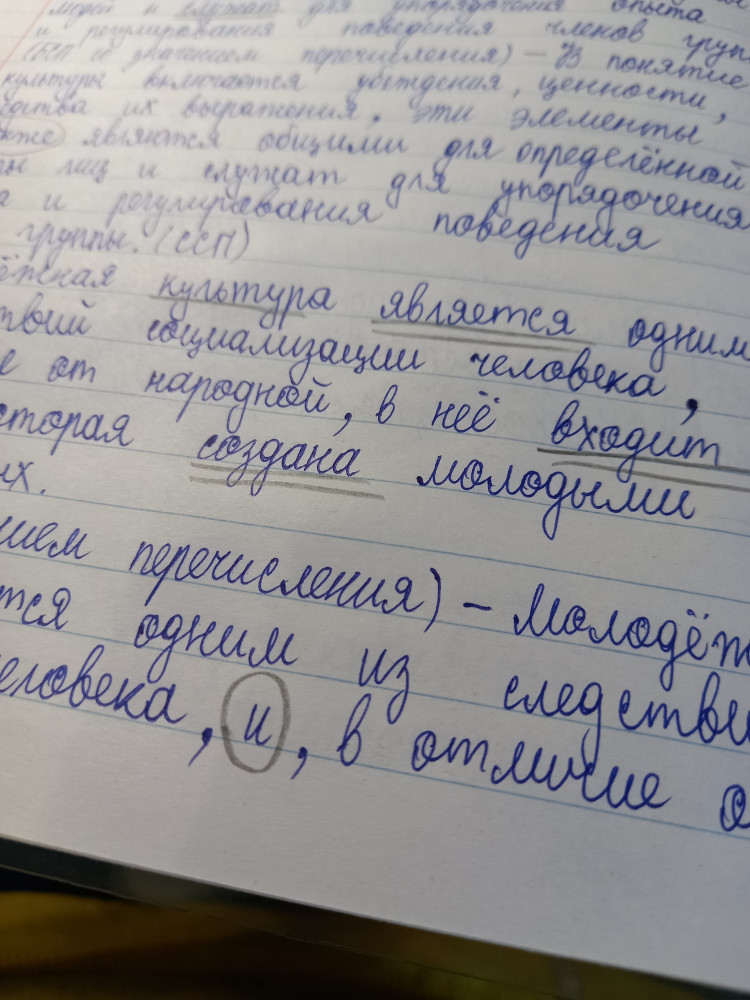 людей и служат для упорядочения опыта
и регулирования поведения членов груп
(БСП со значением перечисления) – В понятие
культуры включается убеждения, ценности,
едства их выражения, эти элементы
акже являются общими для определённой
ы лиц и служат для упорядочения
а и регулирования поведения
группы. (ССП)
ёжная культура является одним
твий социализации человека,
е от народной, в неё входит
оторая создана молодыми
их.
нием перечисления) – Молодёж
тся одним из следстви
еловека, и, в отличие о